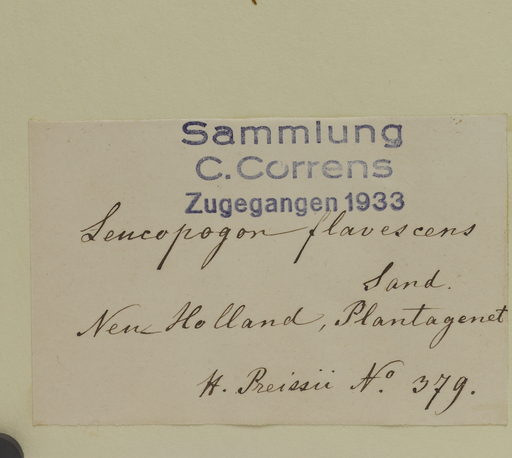 Sammlung
C. Correns
Zugegangen 1933
Leucopogon flavescens
Sond.
Neu-Holland, Plantagenet
H. Preissii No. 379.